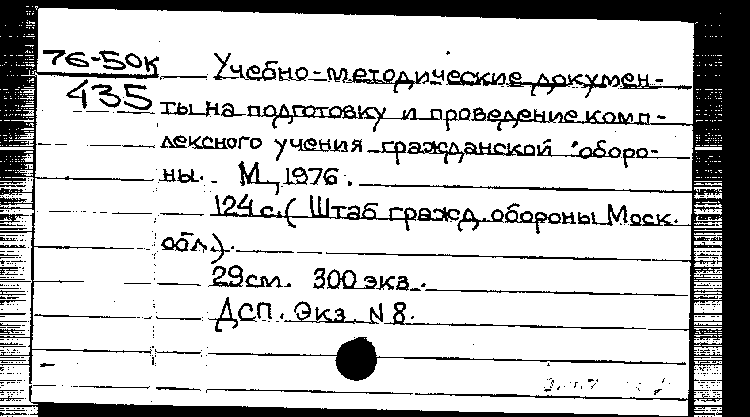 76-50к
435
Учебно-методические докумен-
ты на подготовку и проведение комп-
лексного учения гражданской оборо-
ны. М., 1976.
124 с. ( Штаб гражд. обороны Моск.
обл.).
29 см. 300 экз.
ДСП. Экз. N 8.